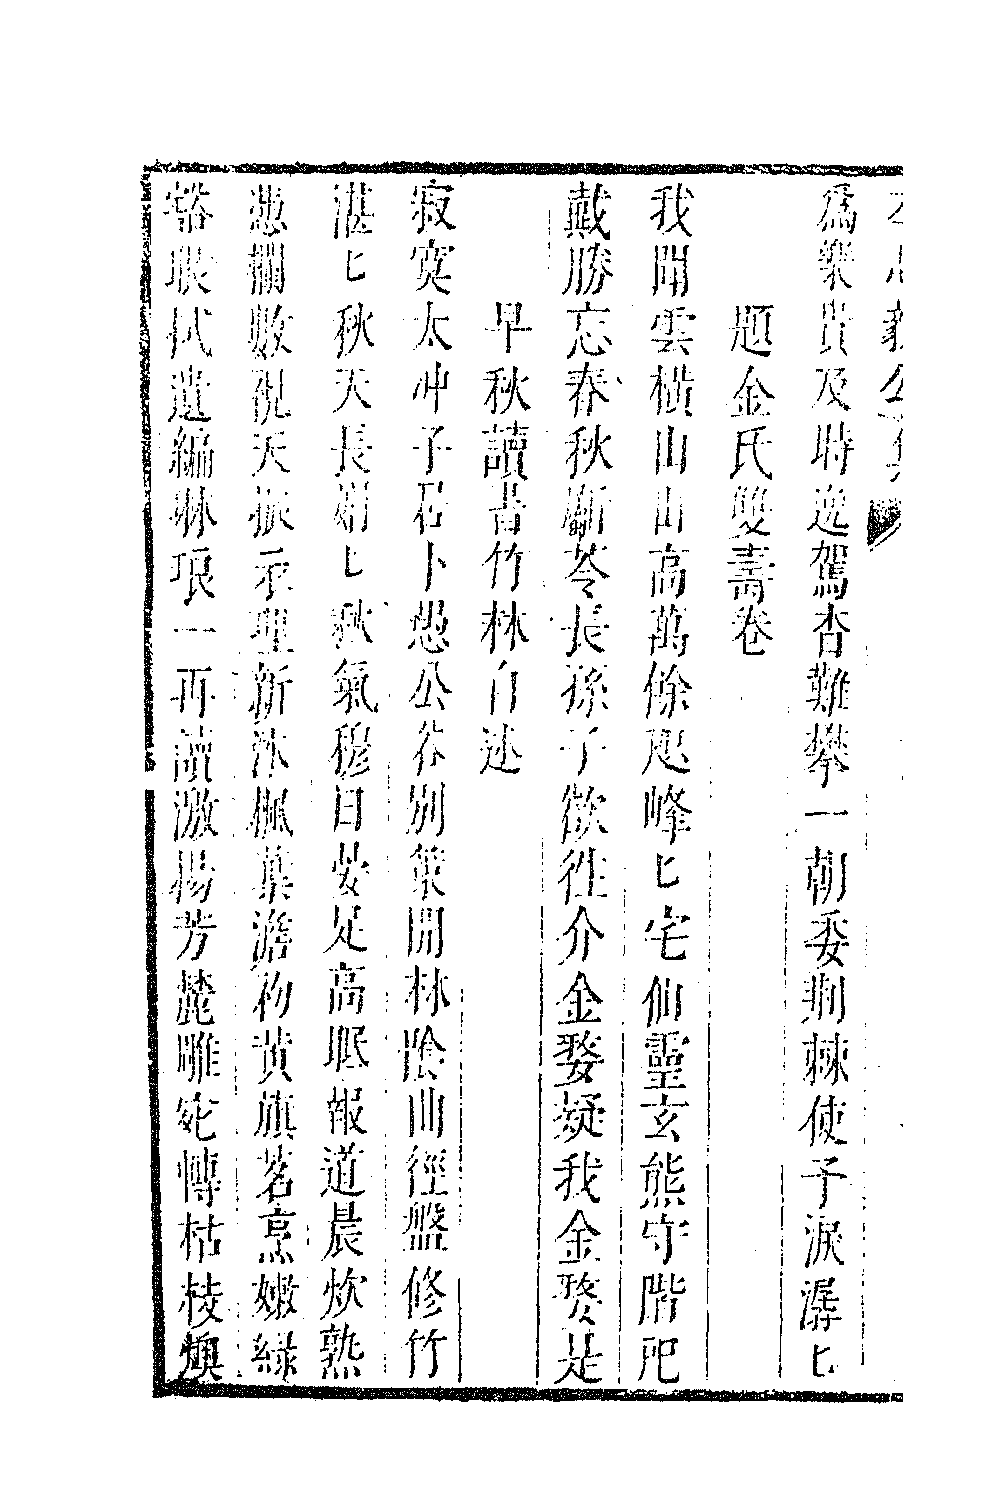 爲樂貴及時逸駕杳難攀一朝委荆棘使予淚潺匕
題金氏雙壽卷
我聞雲橫山山高萬餘咫峰匕宅仙靈玄熊守階戺
戴勝忘春秋斸苓長孫子欲往介金婺疑我金婺是
早秋讀書竹林自述
寂寞太冲子居卜愚公谷別業開林陰曲徑盤修竹
湛匕秋天長娟匕秋氣穆日晏足高眠報道晨炊熟
憑欄數視天振衣理新沐楓葉澹初黃旗茗烹嫩綠
豁眼拭遺編琳琅一再讀激楊芳麓雕宛轉枯枝燠